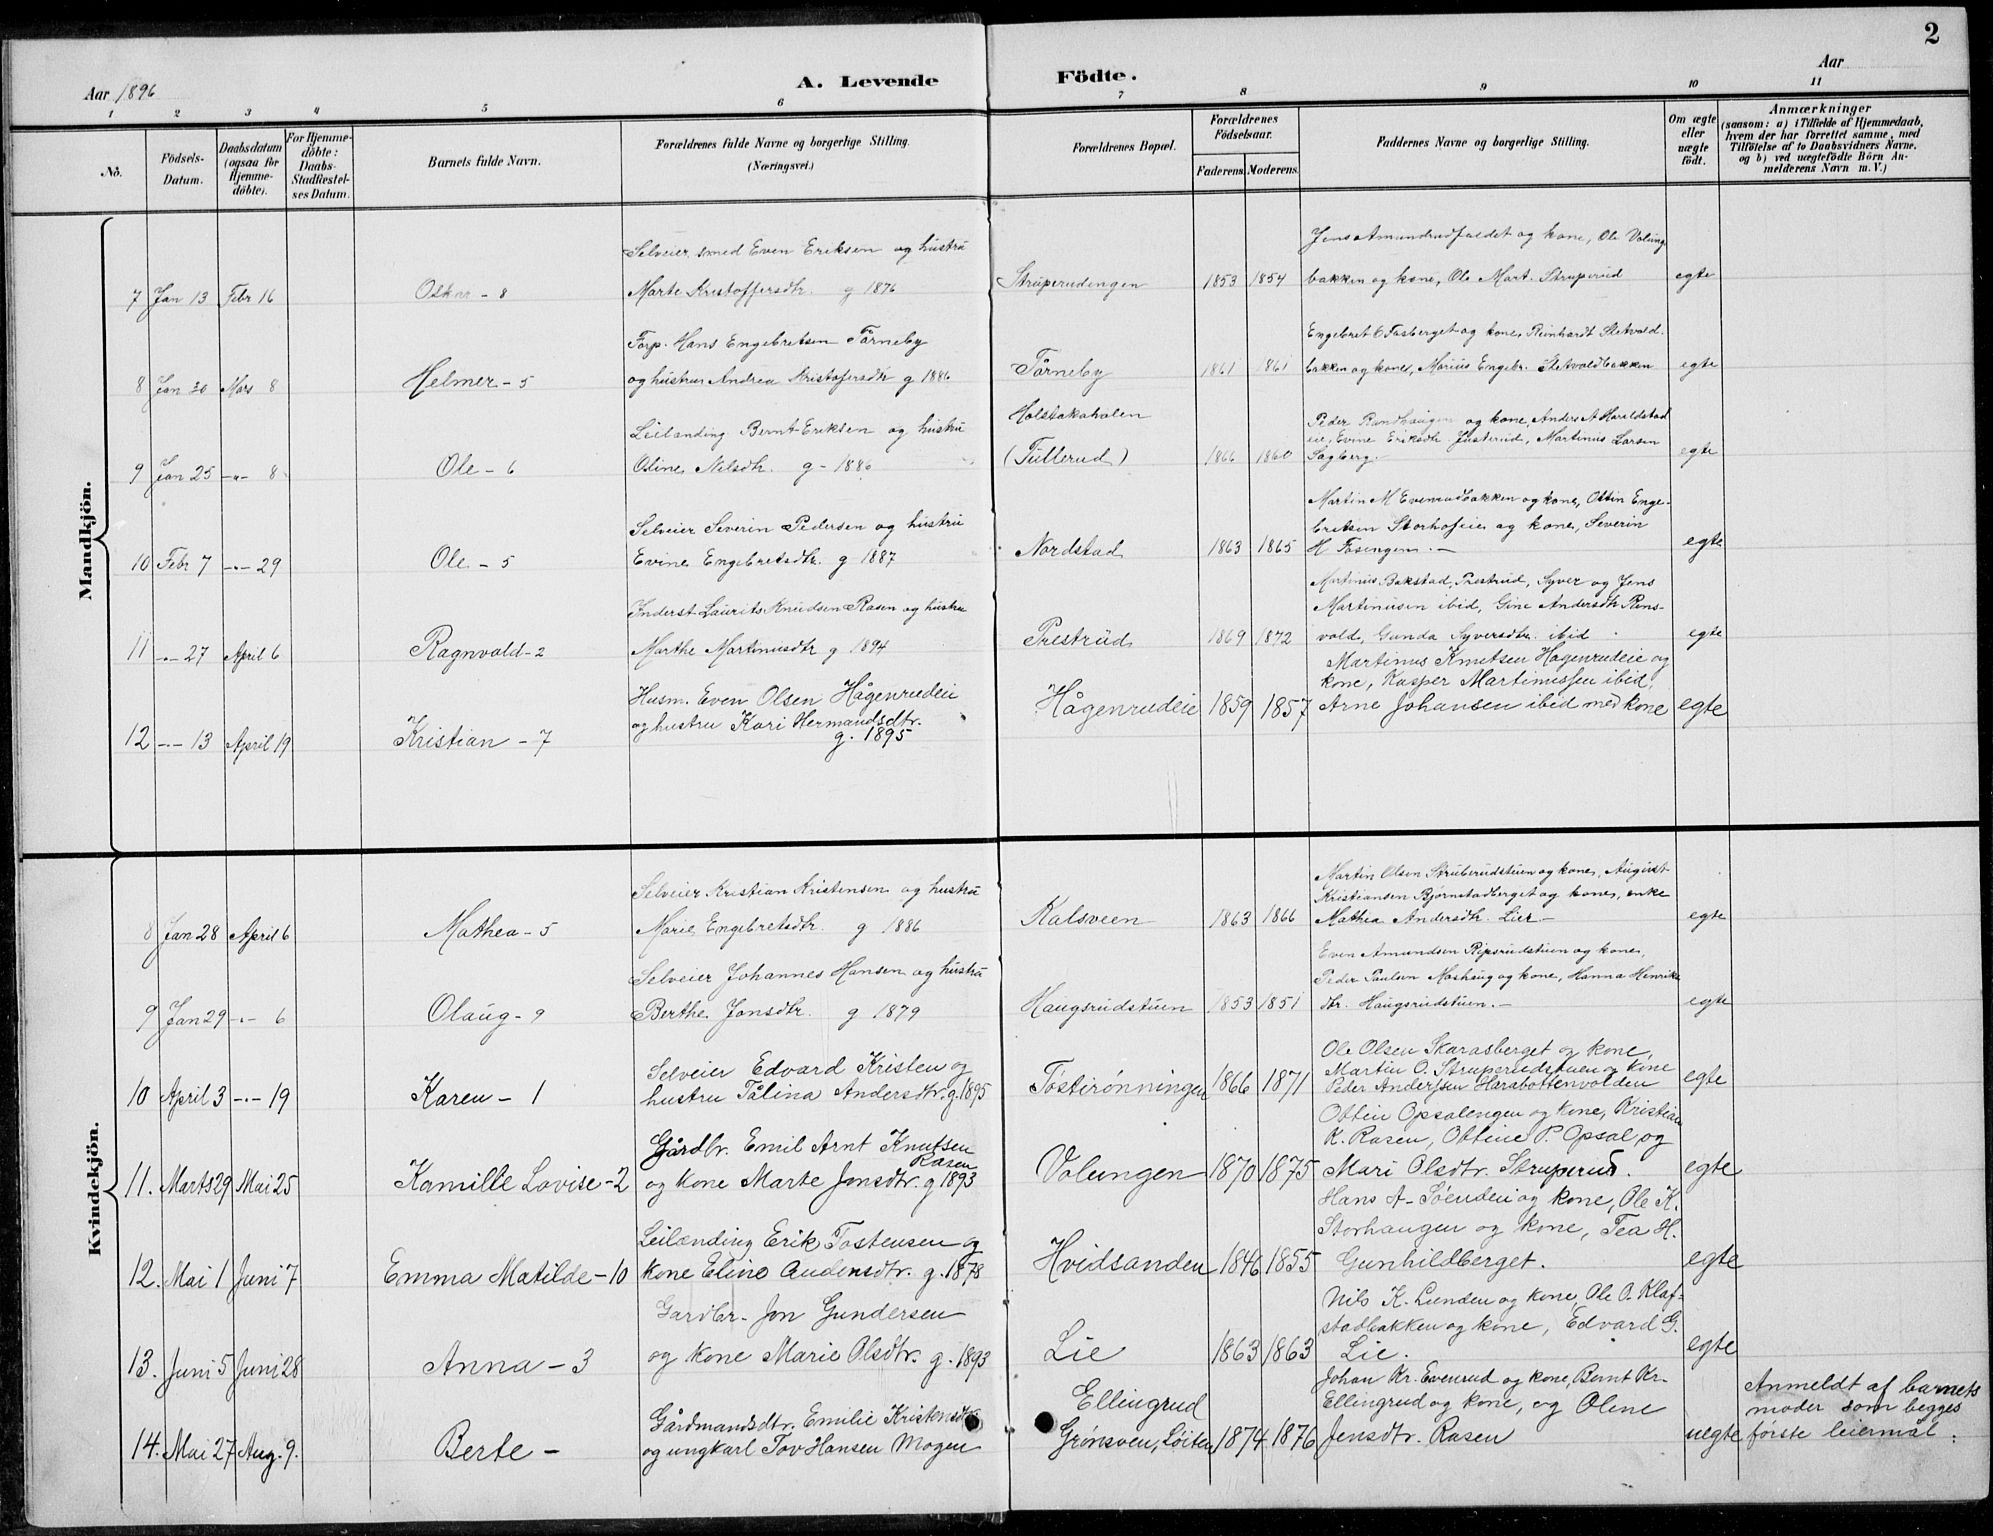 2
Aar 1896
A. Levende Födte.
Aar
1 2 3 4 5 6 7 8 9 10 11
No.
Födsels-Datum.
Daabsdatum (ogsaa for Hjemme-döbte).
For Hjemme-döbte: Daabs-Stadfæstel-ses Datum.
Barnets fulde Navn.
Forældrenes fulde Navne og borgerlige Stilling. (Næringsvei.)
Forældrenes Bopæl.
Forældrenes Födselsaar.
Faderens. Moderens.
Faddernes Navne og borgerlige Stilling.
Om ægte eller uægte födt.
Anmærkninger
(saasom: a) i Tilfælde af Hjemmedaab,
hvem der har forrettet samme, med
Tilföielse af to Daabsvidners Navne,
og b) ved uægtefödte Börn An-
melderens Navn m. V.)
Mandkjön.
Selveier smed Even Eriksen og hustru
Marte Kristoffersdtr. g 1876
7 Jan 13 Febr 16 Oskar - 8
Struperudengen 1853 1854
Jens Amundrudfaldet og kone, Ole Volung-
bakken og kone, Ole Mart. Struperud
egte
Forp. Hans Engebretsen Törneby
og hustru Andrea Kristofersdtr g 1886
8 Jan 20 Mars 8 Helmer - 5
Törneby 1861 1861
Engebret E Fasberget og kone, Reinhardt Sletvold-
bakken og kone, Marius Engebr. Sletvoldbakken
egte
Leilænding Bernt Eriksen og hustru
Oline Nilsdtr. g - 1886
9 Jan 25 -"- 8 Ole - 6
Holstakaholen
(Tullerud) 1866 1860
Peder Rundhaugen og kone, Anders A Haraldstad
eie, Evine Eriksdtr Justerud, Martinus Larsen
Sagberg.
egte
Selveier Severin Pedersen og hustru
Evine Engebretsdtr. g 1887
10 Febr 7 -"- 29 Ole - 5
Nordstad 1863 1865
Martin M Evenrudbakken og kone, Ottin Enge-
bretsen Storhofeie og kone, Severin
H Fosengen. -
egte
Inderst Laurits Knudsen Rasen og hustru
Marthe Martinusdtr g 1894
11 -"- 27 April 6 Ragnvald - 2
Prestrud 1869 1872
Martinus Bakstad, Prestrud, Syver og Jens
Martinusen ibid, Gine Andersdtr Rens-
vold, Gunda Syversdtr. ibid
egte
Husm. Even Olsen Hågenrudeie
og hustru Kari Hermandsdtr.
g. 1895
12 -"- 13 April 19 Kristian - 7
Hågenrudeie 1859 1857
Martinus Knutsen Hagenrudeie og
kone, Kasper Martinussen ibid,
Arne Johansen ibid med kone
egte
Kvindekjön.
Selveier Kristian Kristensen og hustru
Marie Engebretsdtr. g 1886
8 Jan 28 April 6 Mathea - 5
Kalsveen 1863 1866
Martin Olsen Struberudstuen og kone, August
Kristiansen Bjørnstadberget og kone, enke
Mathea Andersdtr. Lier -
egte
Selveier Johannes Hansen og hustru
Berthe Jonsdtr. g 1879
9 Jan 29 -"- 6 Olaug - 9
Haugsrudstuen 1853 1851
Even Amundsen Ripsrudstuen og kone,
Peder Paulsen Mashaug og kone, Hanna Henriks
dtr. Haugsrudstuen. -
egte
Selveier Edvard Kristen og
hustru Tålina Andersdtr. g. 1895
10 April 3 -"- 19 Karen - 1
Tostirønningen 1866 1871
Ole Olsen Skarasberget og kone,
Martin O. Struperudstuen og kone
Peder Anderssen Harabottenvolden
egte
Gårdbr. Emil Arnt Knutsen
Rasen
og kone Marte Jonsdtr. g 1893
11. Marts 29 Mai 25 Kamille Lovise - 2
Volungen 1870 1875
Ottin Opsalengen og kone, Kristian
K. Rasen, Ottine P. Opsal og
Mari Olsdtr. Struperud.
egte
Leilænding Erik Tostensen og
kone Eline Audensdtr. g. 1878
12. Mai 1 Juni 7 Emma Matilde - 10
Hvidsanden 1846 1855
Hans A- Söerudeie og kone, Ole K.
Storhaugen og kone, Tea H.
Gunhildberget.
egte
Gardbr. Jon Gundersen
og kone Marie Olsdtr. g. 1893
13. Juni 5 Juni 28 Anna - 3
Lie 1863 1863
Nils K. Lunden og kone, Ole O. Klaf-
stadbakken og kone, Edvard G.
Lie.
egte
Gårdmandsdtr. Emilie Kristensdtr
og ungkarl Tov Hansen Mogen
14. Mai 27 Aug. 9. Berte -
Ellingrud
Grønsven, Løiten 1874 1876
Johan Kr. Evenrud og kone, Bernt Kr.
Ellingrud og kone, og Oline
Jensdtr. Rasen
uegte
Anmeldt af barnets
moder som begges
første leiermål.